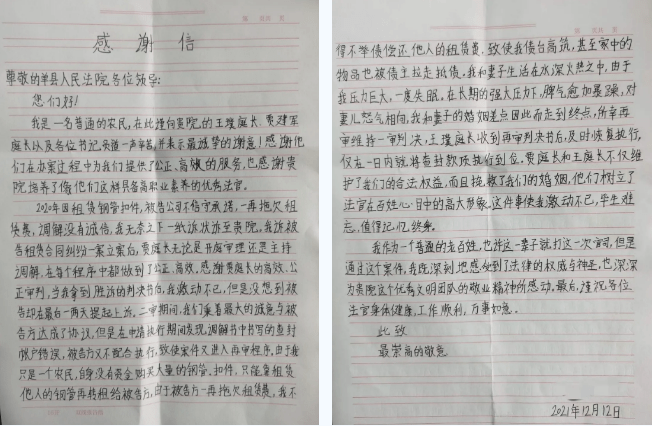 感谢信
尊敬的单县人民法院各位领导:
您们好!
我是一名普通的农民,在此谨向贵院的王璞庭长、贾建军
庭长以及各位书记员道一声辛苦,并表示最诚挚的谢意!感谢他
们在办案过程中为我们提供了公正、高效的服务,也感谢贵
院培养了像他们这样具备高职业素养的优秀法官。
2020年因租赁钢管扣件,被告公司不信守承诺,一再拖欠租
赁费,调解没有诚信,我无奈之下一纸诉状诉至贵院,我诉被
告租赁合同纠纷一案立案后,贾庭长无论是开庭审理还是主持
调解,在每个程序中都做到了公正、高效,感谢贾庭长的高效、公
正审判,当我拿到胜诉的判决书后,我激动不已,但是没想到被
告却在最后一两天提起上诉。二审期间,我们秉着最大的诚意与被
告方达成了协议,但是在申请执行期间发现,调解书中书写的查封
帐户错误,被告方又不配合执行,致使案件又进入再审程序,由于我
只是一个农民,自身没有资金购买大量的钢管、扣件,只能靠租赁
他人的钢管再转租给被告方,由于被告方一再拖欠租赁费,我不
得不举债偿还他人的租赁费,致使我债台高筑,甚至家中的
物品也被债主拉走抵债,我和妻子生活在水深火热之中,由于
我压力巨大,一度失眠,在长期的强大压力下,脾气愈加暴躁,对
妻儿怒气相向,我和妻子的婚姻差点因此而走到终点,所幸再
审维持一审判决,王璞庭长收到再审判决书后,及时恢复执行,
仅在一日内就将查封款项执行到位,贾庭长和王庭长不仅维
护了我们的合法权益,而且挽救了我们的婚姻,他们树立了
法官在百姓心目中的高大形象,这件事使我激动不已,毕生难
忘,值得记忆终身。
我作为一个普通的老百姓,也许这一辈子就打这一次官司,但是
通过这个案件,我既深刻地感受到了法律的权威与神圣,也深深
为贵院这个优秀文明团队的敬业精神所感动。最后,谨祝各位
法官身体健康,工作顺利,万事如意。
此致
最崇高的敬意
2021年12月12日